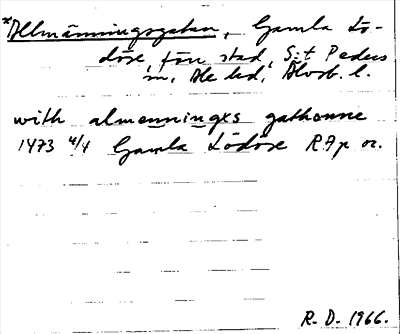 *Allmänningsgatan, Gamla Lö-
döse, förr stad, S:t Peders
sn, Ale hd, Älvsb. l.
with almenningxs gathonne
1473 4/4 Gamla Lödöse RAp or.
R. D. 1966.